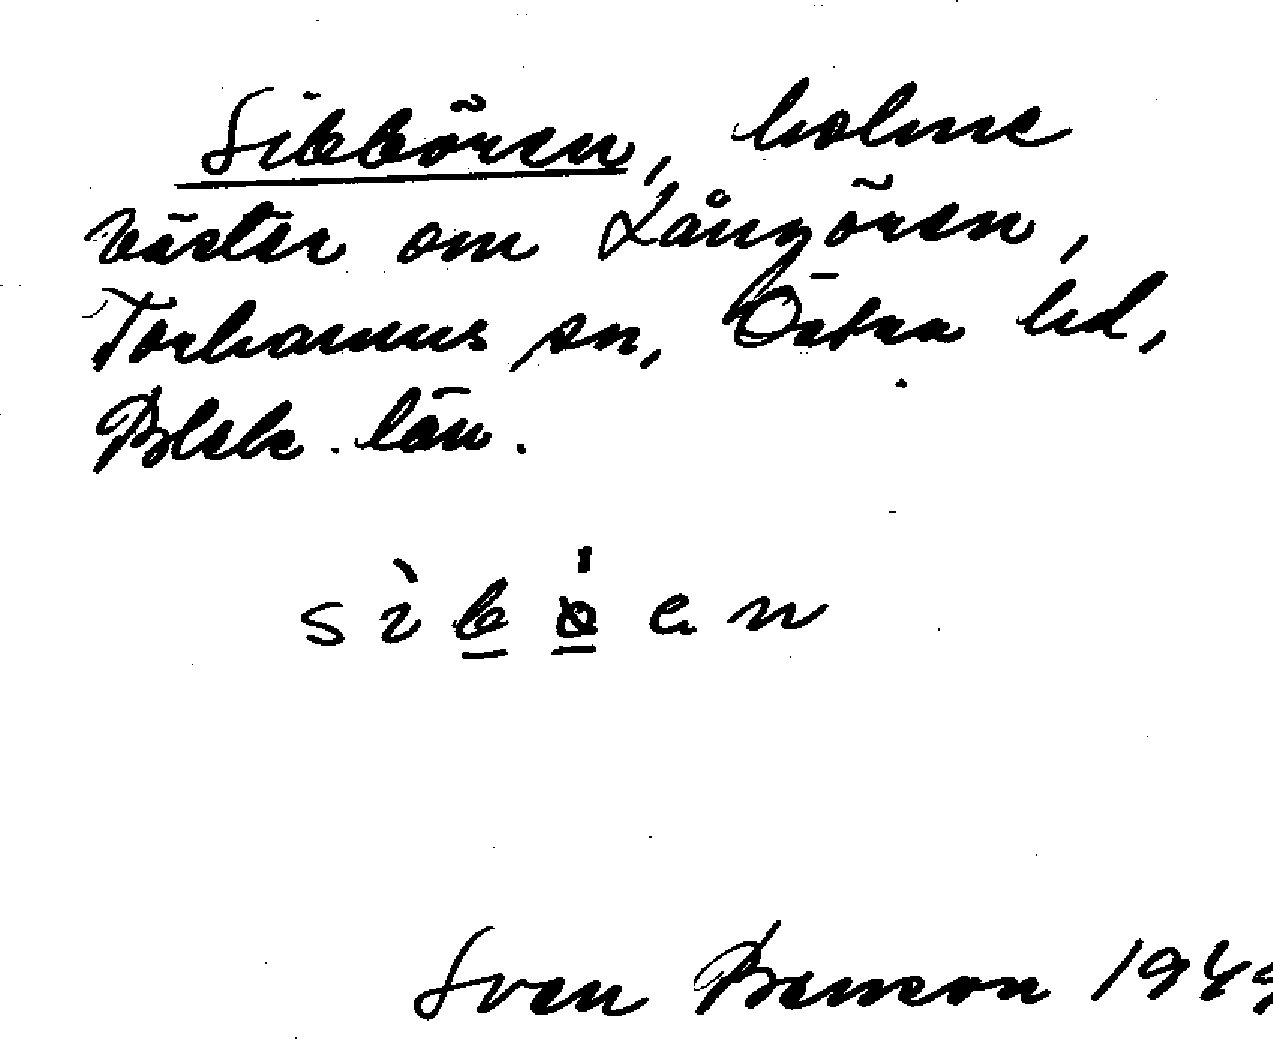 Sibbören, holme
väster om Långören,
Torhamns sn, Östra hd,
Blek. län.
Sven Benson